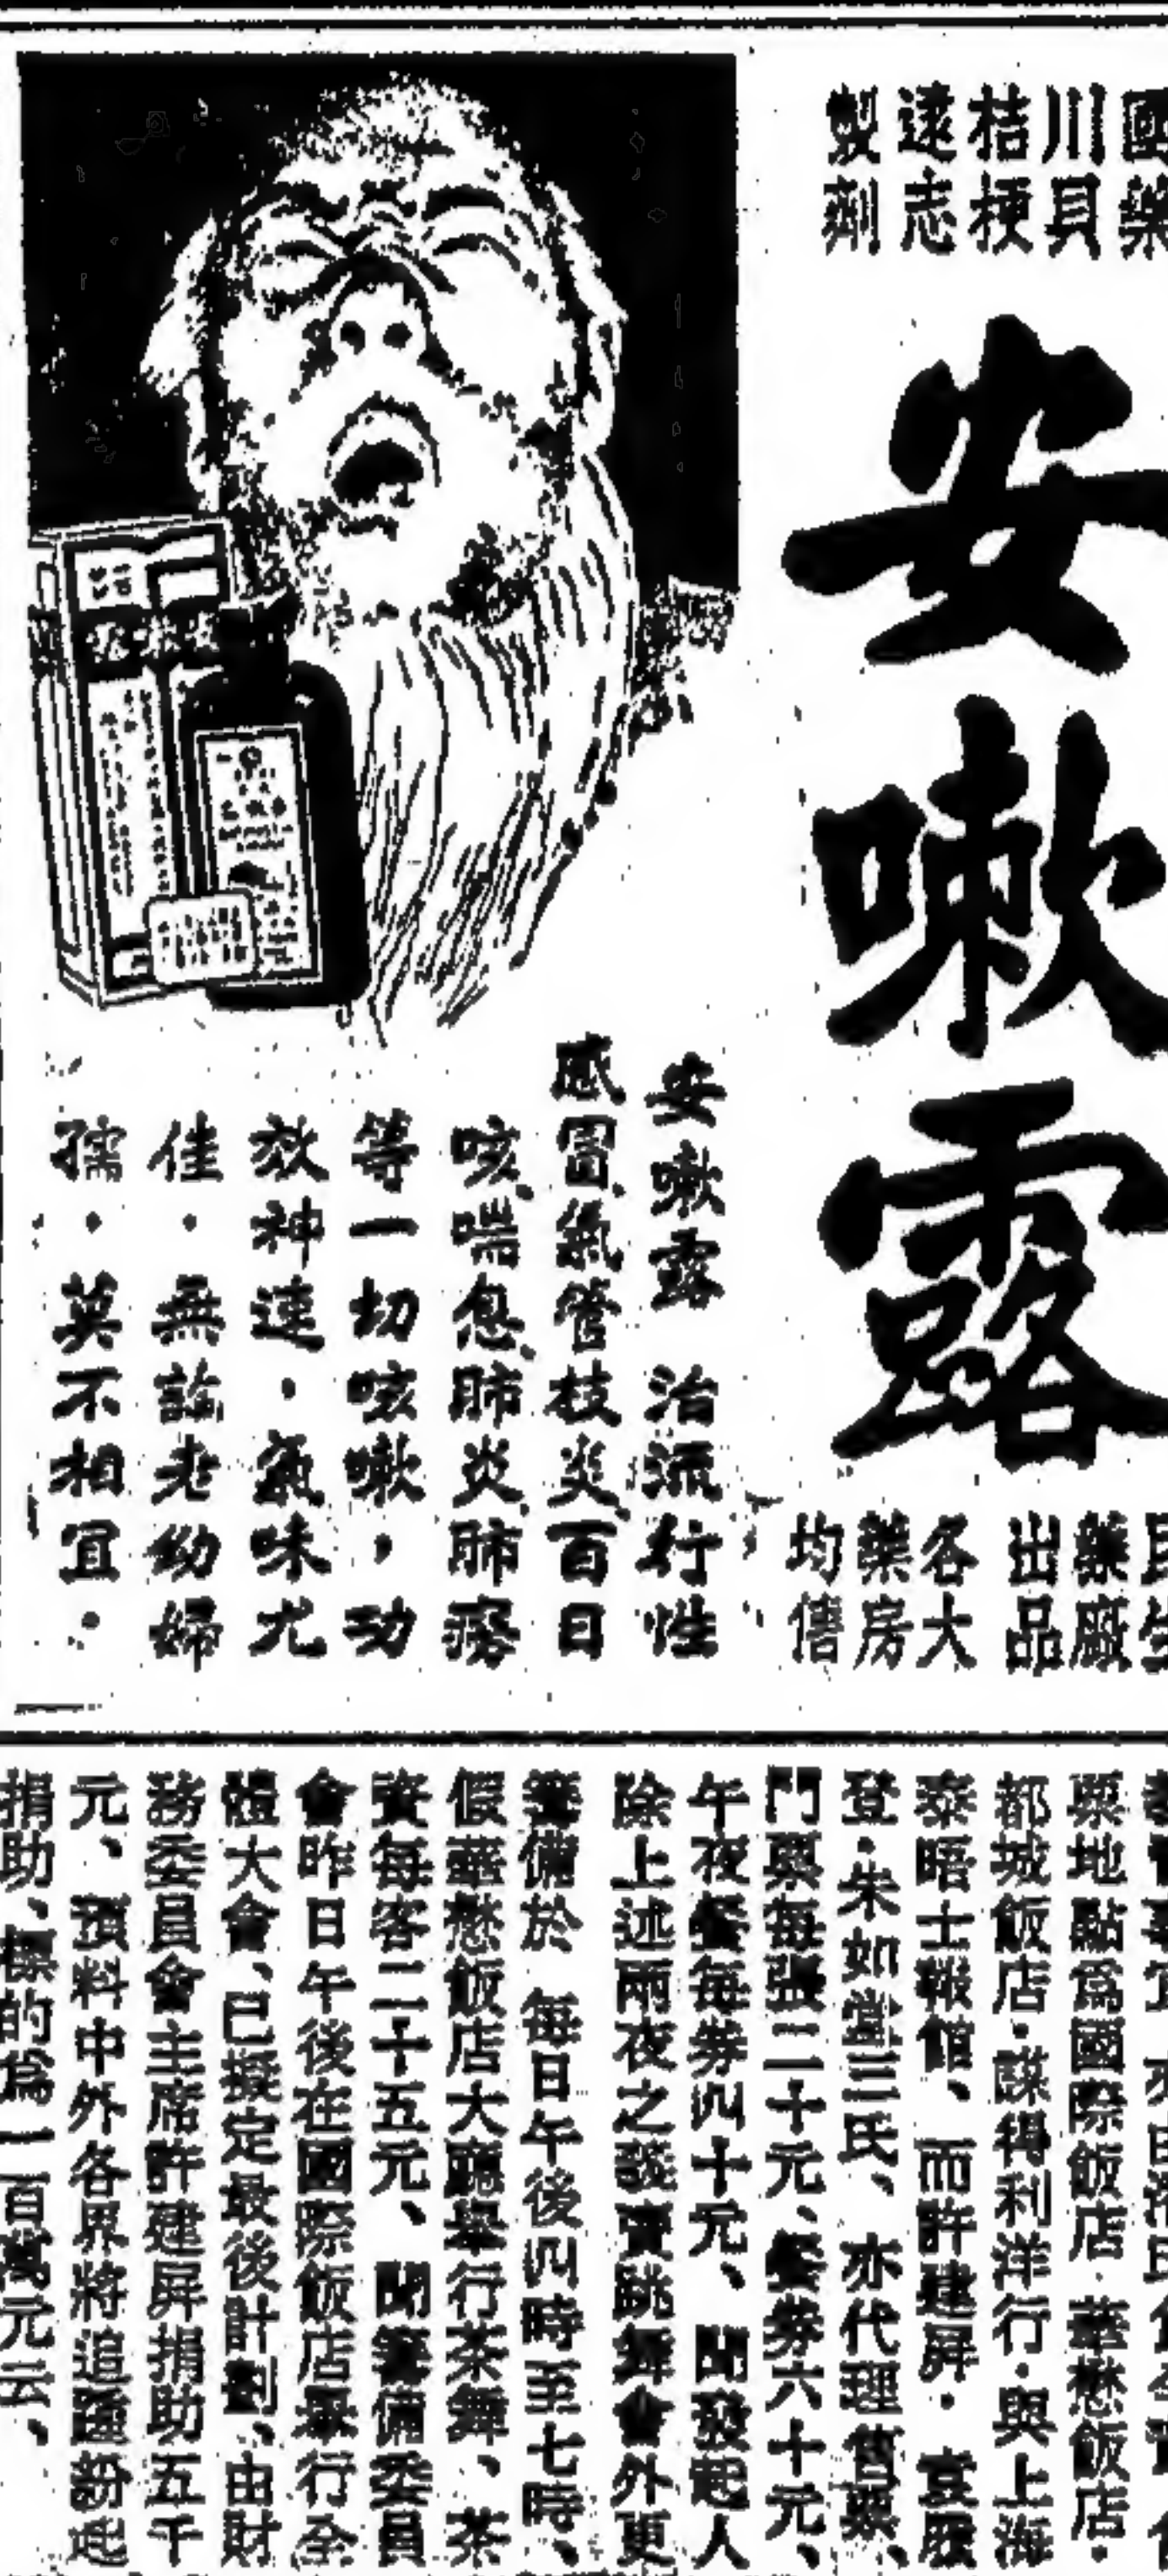 國藥
川貝
桔梗
遠志
製劑
安嗽露
藥廠
出品
各大
藥房
均售
安嗽露 治流行性
感冒氣管枝炎百日
咳喘息肺炎肺癆
等一切咳嗽，功
效神速・氣味尤
佳・無論老幼婦
孺・莫不相宜・
票地點爲國際飯店・華懋飯店・
都城飯店・謀得利洋行・與上海
泰晤士報館、而許建屏・袁履
登・朱如堂三氏、亦代理售票、
門票每張二十元、餐券六十元、
午夜餐每券四十元、聞發起人
除上述兩夜之發賣跳舞會外更
籌備於 每日午後四時至七時、
假華懋飯店大廳舉行茶舞、茶
資每客二十五元、聞籌備委員
會昨日午後在國際飯店舉行全
體大會、已擬定最後計劃、由財
務委員會主席許建屏捐助五千
元、預料中外各界將追隨紛起
捐助、標的爲一百萬元云、